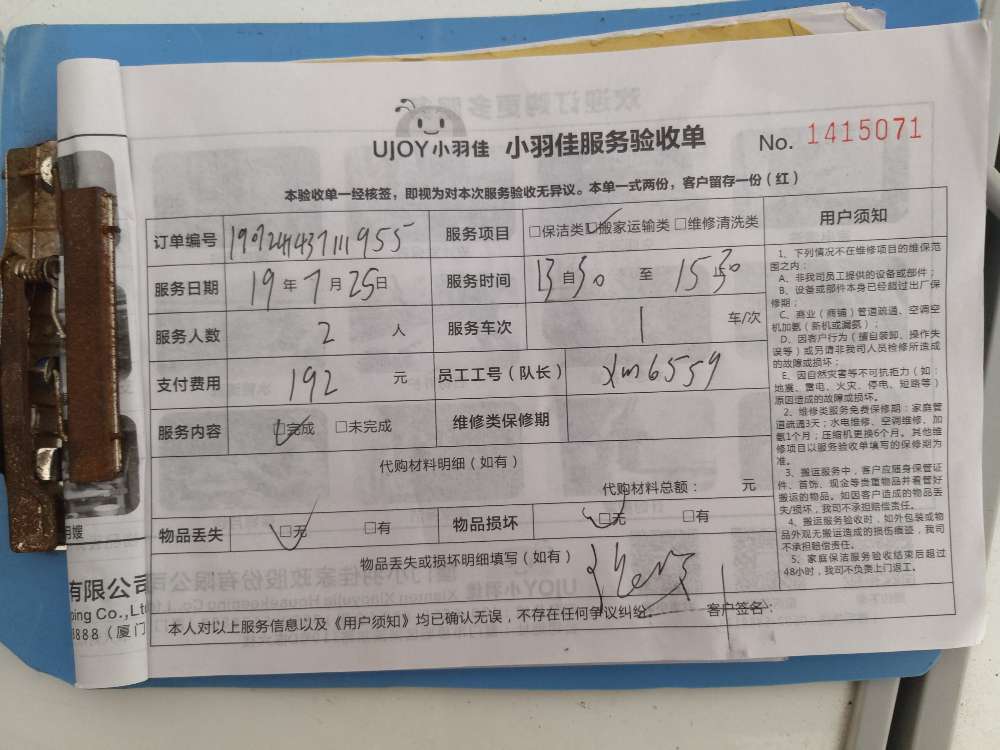 UJOY小羽佳 小羽佳服务验收单 No. 1415071
本验收单一经核签，即视为对本次服务验收无异议。本单一式两份，客户留存一份（红）
订单编号 1907241437111955 服务项目 □保洁类 □搬家运输类 □维修清洗类
服务日期 19年7月25日 服务时间 13自30 至 15 30
服务人数 2 人 服务车次 1 车/次
支付费用 192 元 员工工号（队长） xm6559
服务内容 □完成 □未完成 维修类保修期
代购材料明细（如有）
代购材料总额： 元
物品丢失 □无 □有 物品损坏 □无 □有
物品丢失或损坏明细填写（如有）
本人对以上服务信息以及《用户须知》均已确认无误，不存在任何争议纠纷。 客户签名：
用户须知
1、下列情况不在维修项目的维保范
围之内：
A、非我司员工提供的设备或部件；
B、设备或部件本身已经超过出厂保
修期；
C、商业（商铺）管道疏通、空调空
机加氨（新机或漏氨）；
D、因客户行为（擅自装卸、操作失
误等）或另请非我司人员检修所造成
的故障或损坏；
E、因自然灾害等不可抗拒力（如：
地震、雷电、火灾、停电、短路等）
原因造成的故障或损坏。
2、维修类服务免费保修期：家庭管
道疏通3天；水电维修、空调维修、加
氨1个月；压缩机更换6个月。其他维
修项目以服务验收单填写的保修期为
准。
3、搬运服务中，客户应随身保管证
件、首饰、现金等贵重物品并看管好
搬运的物品。如因客户造成的物品丢
失/损坏，我司不承担赔偿责任。
4、搬运服务验收时，如外包装或物
品外观无搬运造成的损伤痕迹，我司
不承担赔偿责任。
5、家庭保洁服务验收结束后超过
48小时，我司不负责上门返工。
月嫂
有限公司
ping Co.,Lt
8888（厦门